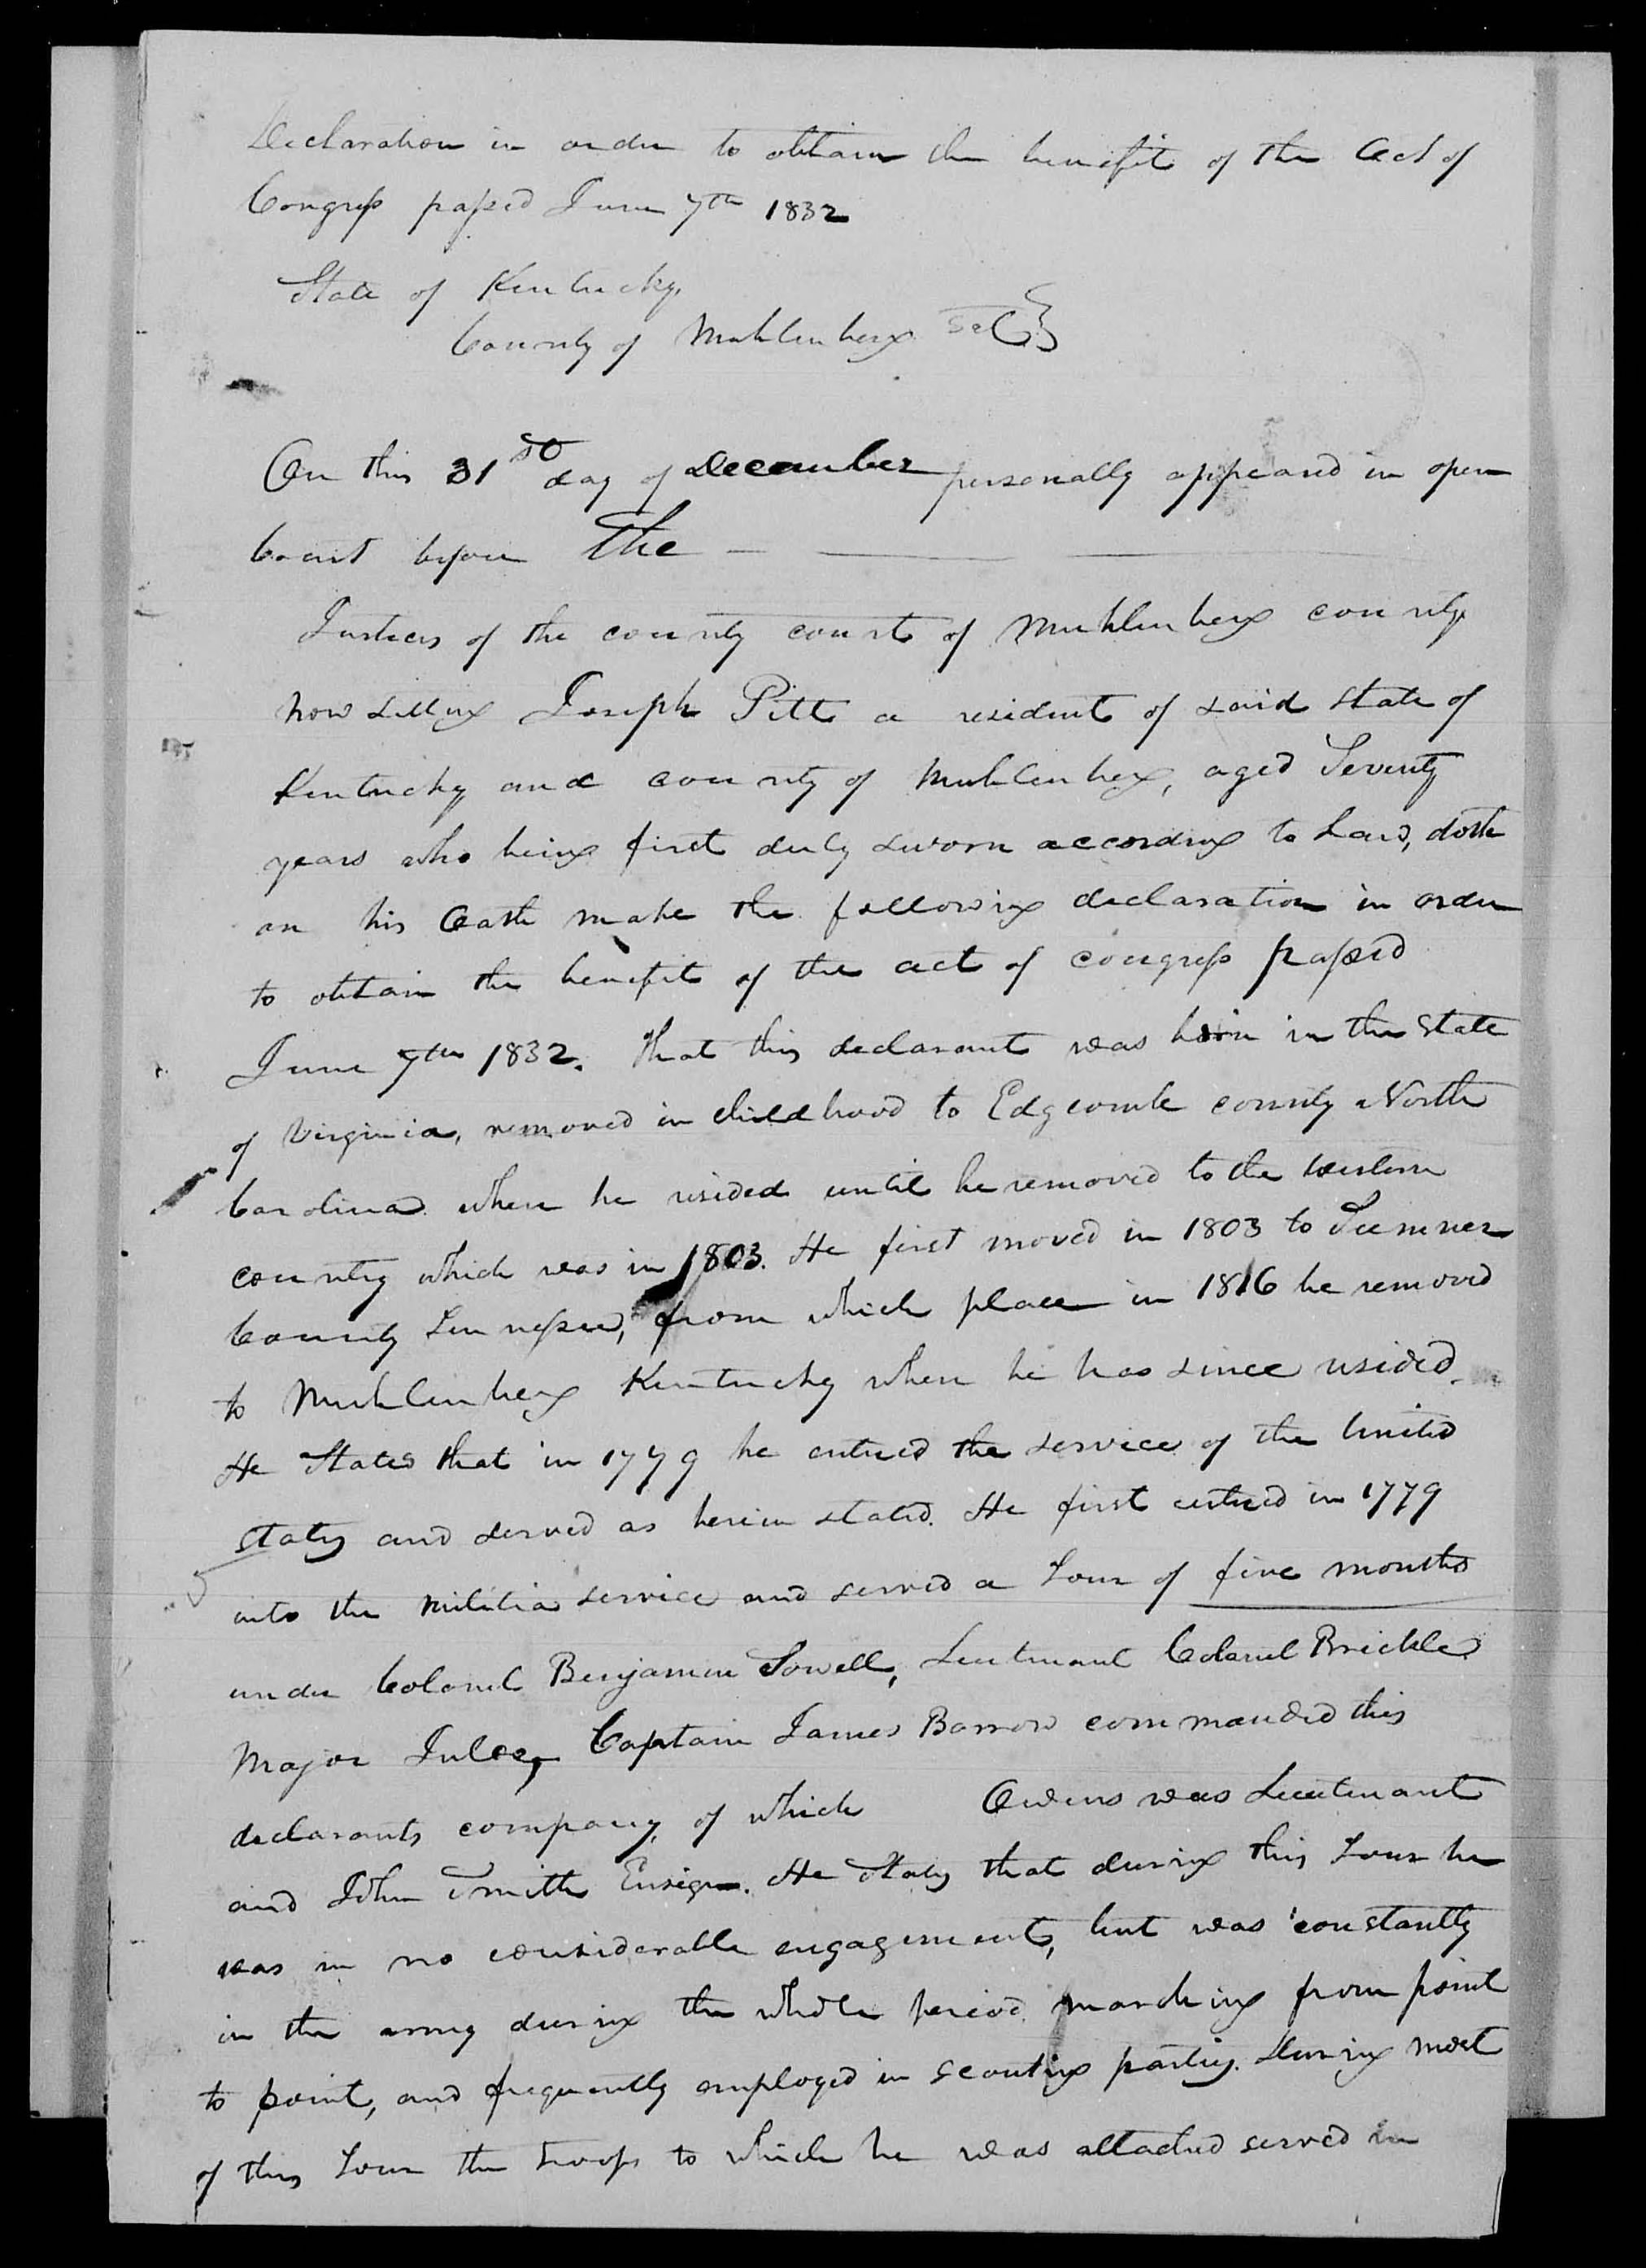 Declaration in order to obtain the benefit of the Act of
Congress passed June 7th 1832
State of Kentucky,
County of Muhlenberg Sct
On this 31st day of December personally appeared in open
Court before The
Justices of the county court of Muhlenberg county
now sitting Joseph Pitt a resident of said state of
Kentucky and county of Muhlenberg, aged Seventy
years who being first duly sworn according to Law, doth
on his Oath make the following declaration in order
to obtain the benefit of the act of congress passed
June 7th 1832. That this declarant was born in the State
of Virginia, removed in childhood to Edgcomb county North
Carolina where he resided until he removed to the western
country which was in 1803. He first moved in 1803 to Sumner
County Tennessee, from which place in 1816 he removed
to Muhlenberg Kentucky where he has since resided.
He States that in 1779 he entered the service of the United
states and served as herein stated. He first entered in 1779
5
into the militia service and served a Tour of five months
under Colonel Benjamin Sowell, Lieutenant Colonel Brickle
Major Captain James Barrow commanded this
declarants company, of which Owens was Lieutenant
and John Smith Ensign. He States that during this Tour he
was in no considerable engagement, but was constantly
in the army during the whole period marching from point
to point, and frequently employed in scouting parties. During most
of this Tour the troops to which he was attached served in